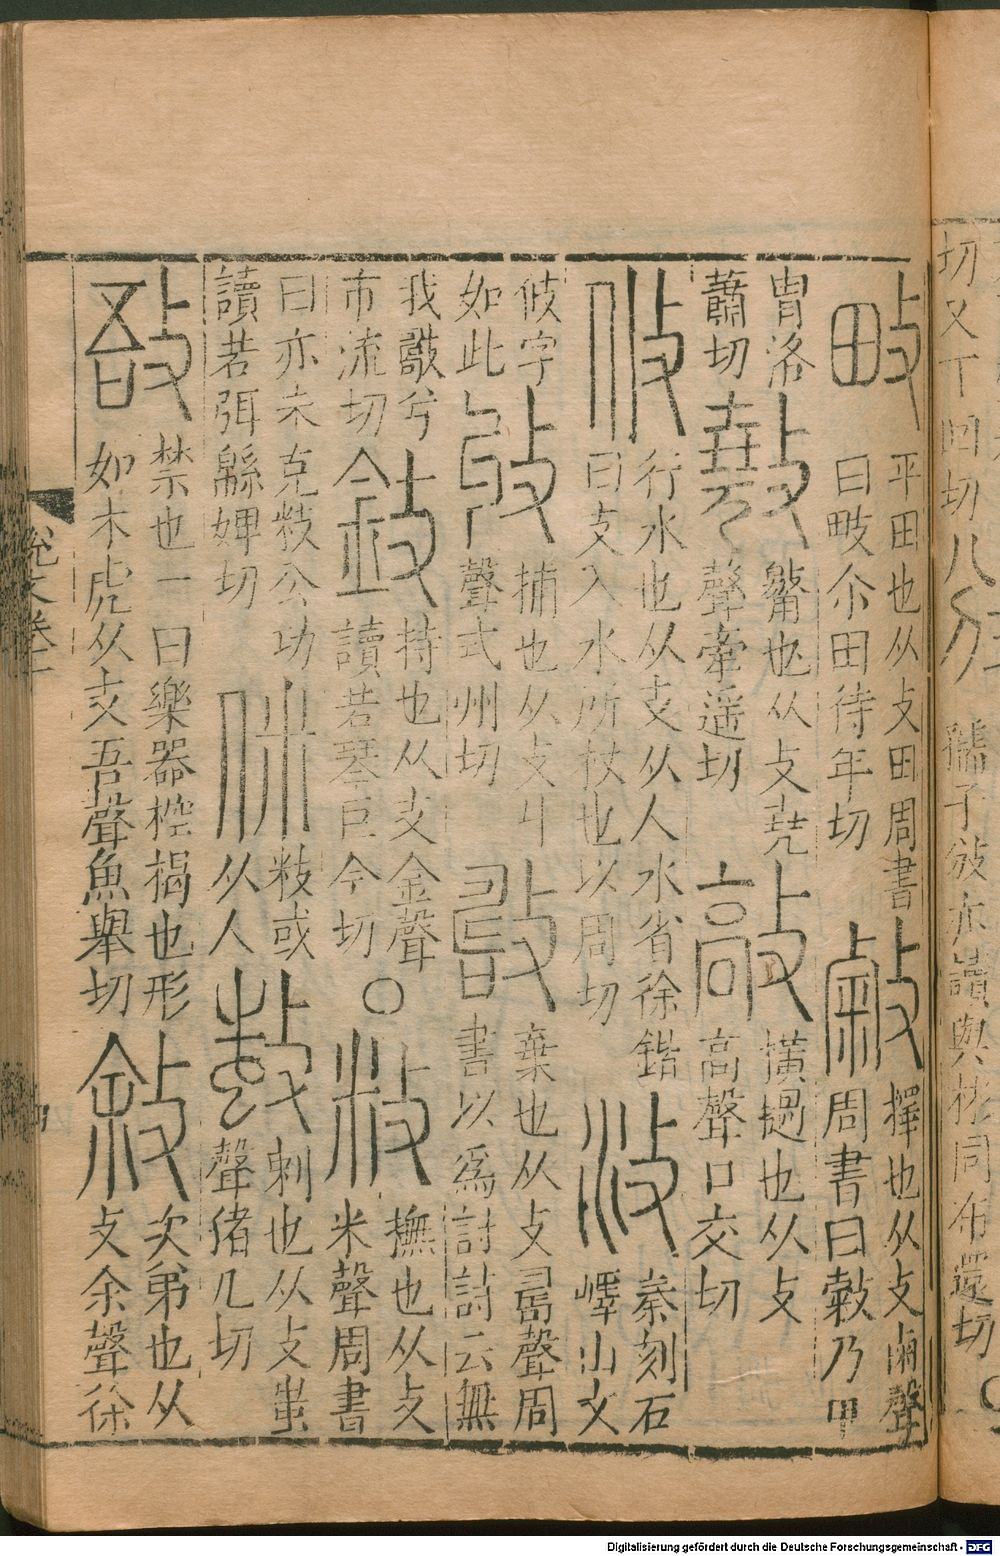 切又丁回切 攽 孺子攽亦讀與彬同布還切
畋 平田也从攴田周書
曰畋尒田待年切
敹 擇也从攴㓁聲
周書曰敹乃甲
胄洛
蕭切
𢿣 㩻也从攴堯
聲牽遥切
敲 橫擿也从攴
高聲口交切
攸 行水也从攴从人水省徐鍇
曰攴入水所杖也以周切
汥 秦刻石
嶧山文
攸字
如此
收 捕也从攴丩
聲式州切
𢿧 棄也从攴𠷎聲周
書以爲討詩云無
我𢿧兮
市流切
㪁 持也从攴金聲
讀若琴巨今切○
敉 撫也从攴
米聲周書
曰亦未克敉公功
讀若弭緜婢切
侎 敉或
从人
𢿙 刺也从攴蚩
聲豬几切
敔 禁也一曰樂器椌楬也形
如木虎从攴吾聲魚舉切
敘 次弟也从
攴余聲徐
說文卷三
Digitalisierung gefördert durch die Deutsche Forschungsgemeinschaft - DFG